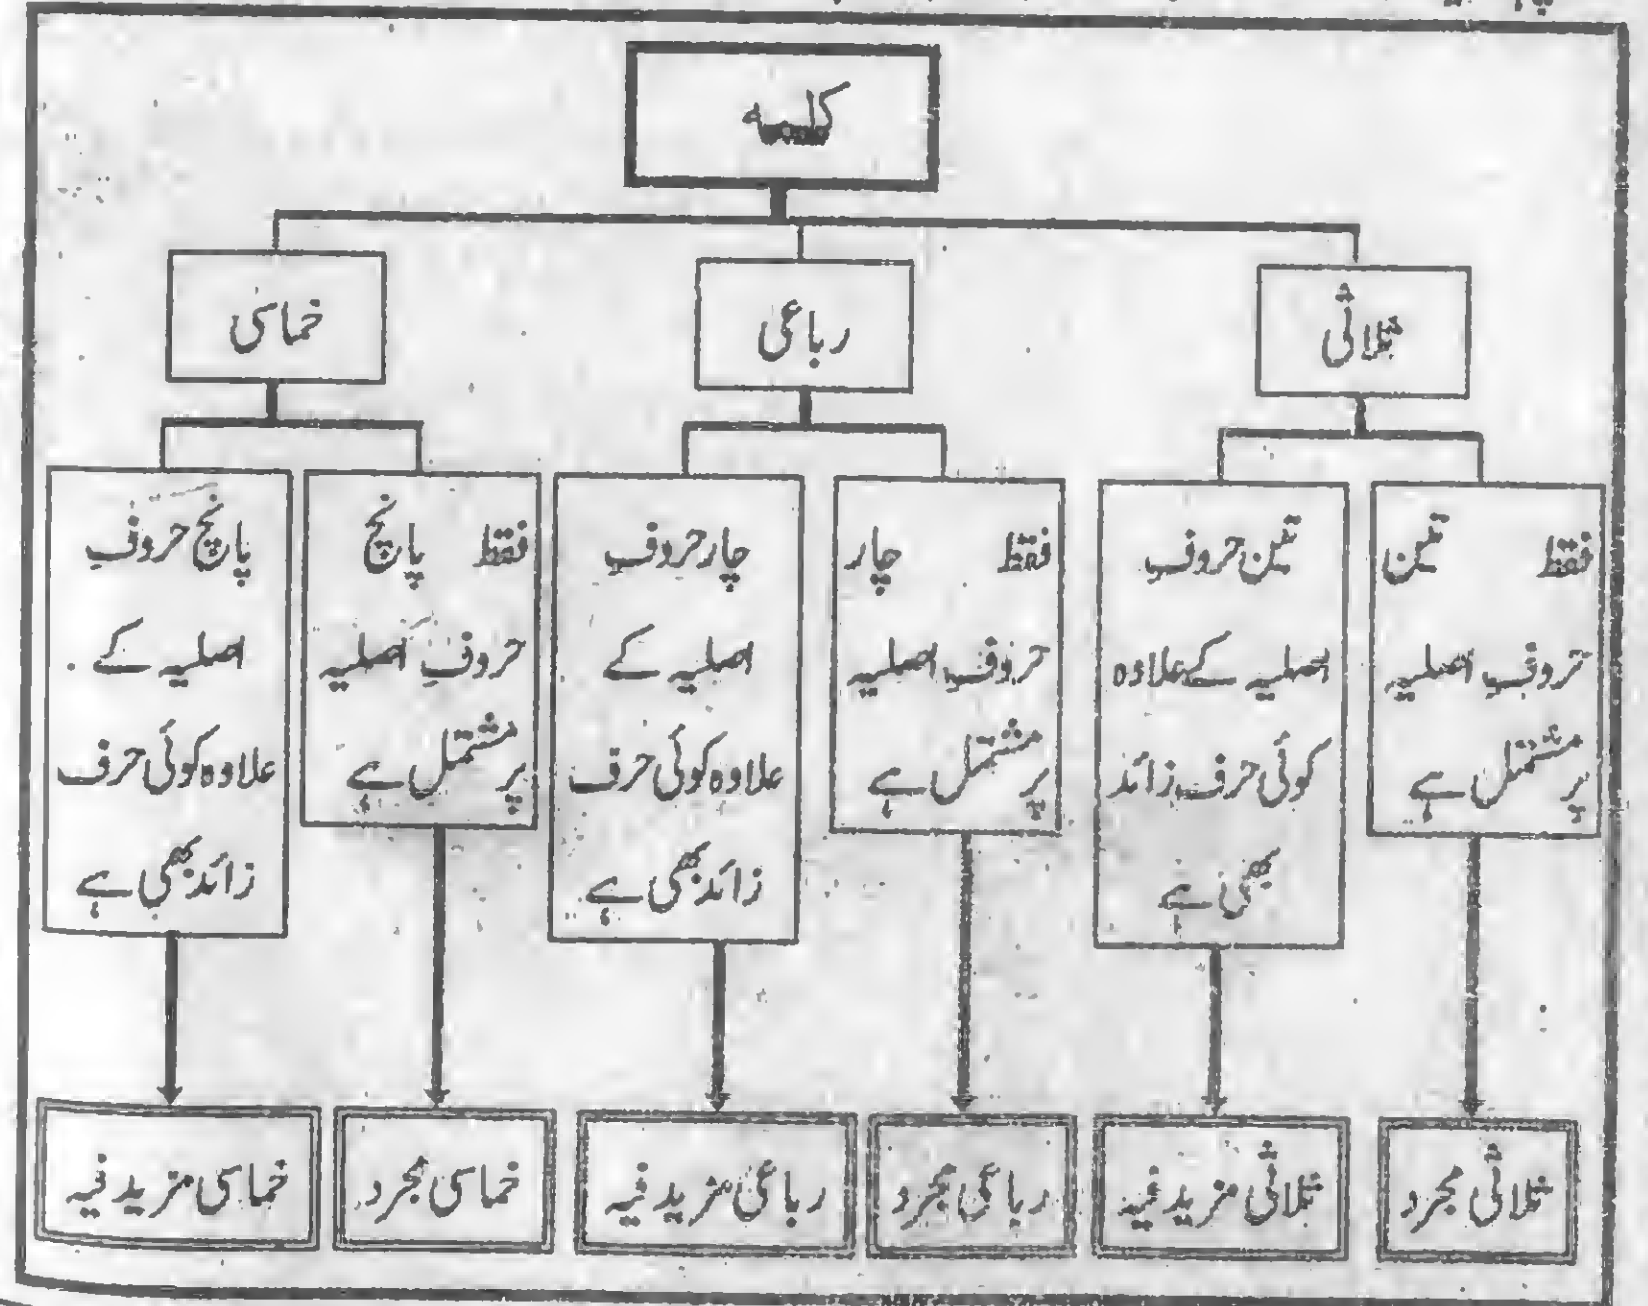 کلمہ
ثلاثی
رباعی
خماسی
فقط تین
حروفِ اصلیہ
پر مشتمل ہے
تین حروفِ
اصلیہ کے علاوہ
کوئی حرف زائد
بھی ہے
فقط چار
حروفِ اصلیہ
پر مشتمل ہے
چار حروفِ
اصلیہ کے
علاوہ کوئی حرف
زائد بھی ہے
فقط پانچ
حروفِ اصلیہ
پر مشتمل ہے
پانچ حروفِ
اصلیہ کے
علاوہ کوئی حرف
زائد بھی ہے
ثلاثی مجرد
ثلاثی مزید فیہ
رباعی مجرد
رباعی مزید فیہ
خماسی مجرد
خماسی مزید فیہ